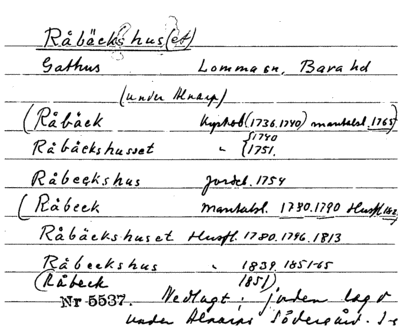 Råbäckshus(et)
Gathus Lomma sn, Bara hd
(under Alnarp)
(Råbäck Kyrkob (1736. 1740) mantalsl. 1765)
Råbäckshusset " {1740 1751.
Råbeckshus Jordeb. 1754
(Råbeck mantalsl. 1780. 1790 Husfl.
Råbäckshuset Husfl. 1780. 1796. 1813
Råbeckshus " 1839. 1851-65
(Råbeck 1851)
Nr 5537. Nedlagt: jorden lagd
under Alnarps Södergård.